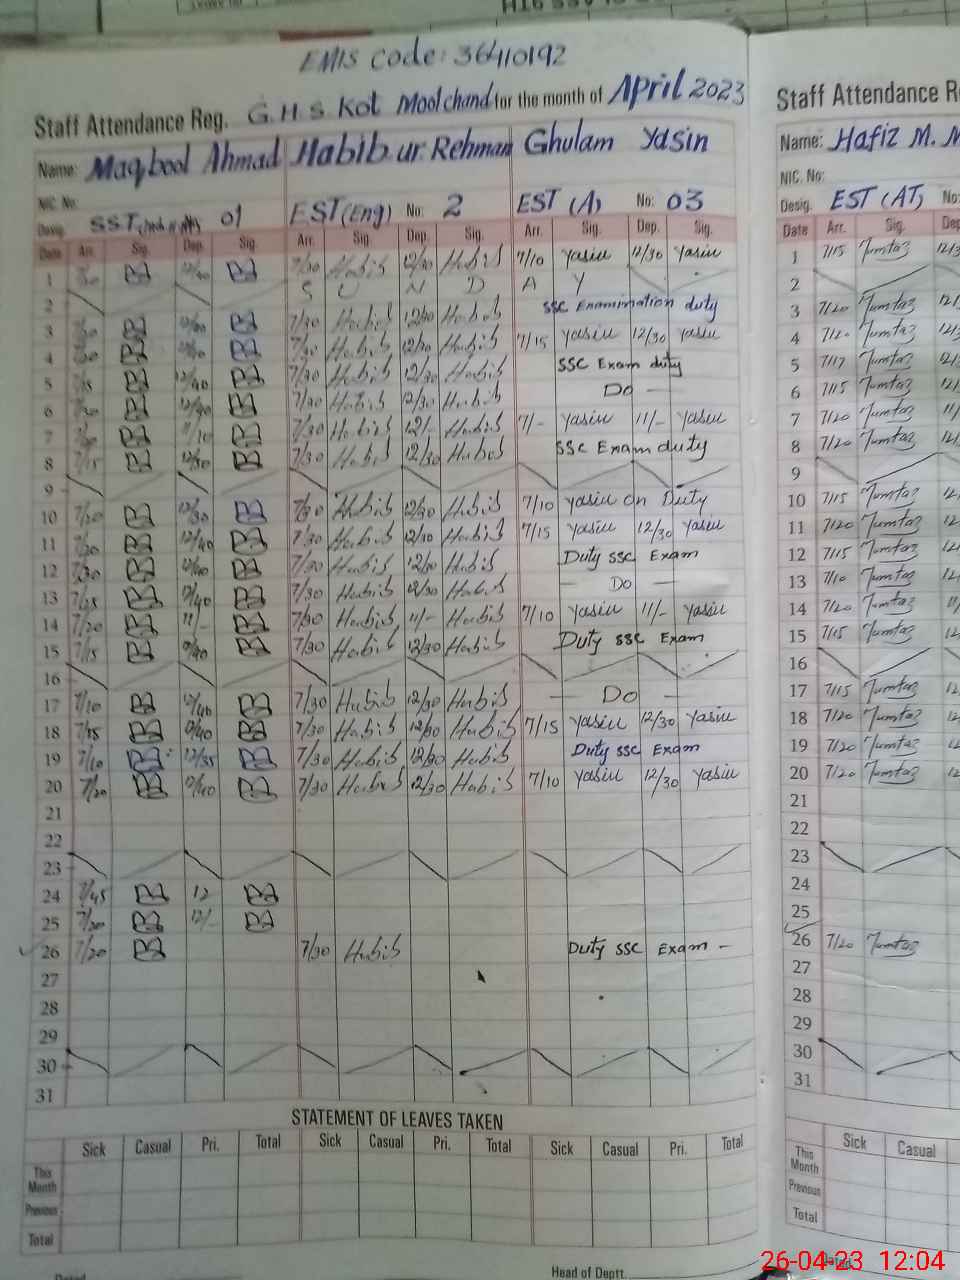 EMIS Code: 36410192
Staff Attendance Reg. G.H.S Kot Moolchand for the month of April 2023
Name: Maqbool Ahmad Habib ur Rehman Ghulam Yasin
NIC. No:
Desig. SST 01 EST (Eng) No: 2 EST (A) No: 03
Date Arr. Sig. Dep. Sig. Arr. Sig. Dep. Sig. Arr. Sig. Dep. Sig.
1 7/30 Habib 12/30 Habib 7/10 Yasin 12/30 Yasin
2 S U N D A Y
3 7/30 Habib 12/30 Habib SSC Examination duty
4 7/30 Habib 12/30 Habib 7/15 Yasin 12/30 Yasin
5 7/15 12/40 7/30 Habib 12/30 Habib SSC Exam duty
6 7/30 Habib 12/30 Habib Do —
7 11/10 7/30 Habib 12/- Habib 7/- Yasin 11/- Yasin
8 7/15 12/30 7/30 Habib 12/30 Habib SSC Exam duty
9
10 7/20 12/30 7/30 Habib 12/30 Habib 7/10 Yasin on Duty
11 7/20 12/40 7/30 Habib 12/10 Habib 7/15 Yasin 12/30 Yasin
12 7/20 12/40 7/30 Habib 12/30 Habib Duty SSC Exam
13 7/25 12/40 7/30 Habib 12/30 Habib — Do —
14 7/20 11/- 7/30 Habib 11/- Habib 7/10 Yasin 11/- Yasin
15 7/15 12/40 7/30 Habib 12/30 Habib Duty SSC Exam
16
17 7/10 12/40 7/30 Habib 12/30 Habib — Do —
18 7/15 12/40 7/30 Habib 12/30 Habib 7/15 Yasin 12/30 Yasin
19 7/10 12/35 7/30 Habib 12/30 Habib Duty SSC Exam
20 7/20 12/40 7/30 Habib 12/30 Habib 7/10 Yasin 12/30 Yasin
21
22
23
24 7/45 12
25 7/20 12/-
26 7/20 7/30 Habib Duty SSC Exam —
27
28
29
30
31
STATEMENT OF LEAVES TAKEN
Sick Casual Pri. Total Sick Casual Pri. Total Sick Casual Pri. Total
This Month
Previous
Total
Head of Deptt.
Staff Attendance Re
Name: Hafiz M. M
NIC. No:
Desig. EST (AT) No:
Date Arr. Sig. Dep
1 7/15 Mumtaz 12/3
2
3 7/20 Mumtaz 12/
4 7/20 Mumtaz 12/3
5 7/17 Mumtaz 12/
6 7/15 Mumtaz 12/
7 7/20 Mumtaz 11/
8 7/20 Mumtaz 12/
9
10 7/15 Mumtaz 12/
11 7/20 Mumtaz 12/
12 7/15 Mumtaz 12/
13 7/10 Mumtaz 12/
14 7/20 Mumtaz 11/
15 7/15 Mumtaz 12/
16
17 7/15 Mumtaz 12/
18 7/20 Mumtaz 12/
19 7/20 Mumtaz 12/
20 7/20 Mumtaz 12/
21
22
23
24
25
26 7/20 Mumtaz
27
28
29
30
31
Sick Casual
This Month
Previous
Total
Dated
26-04-23 12:04